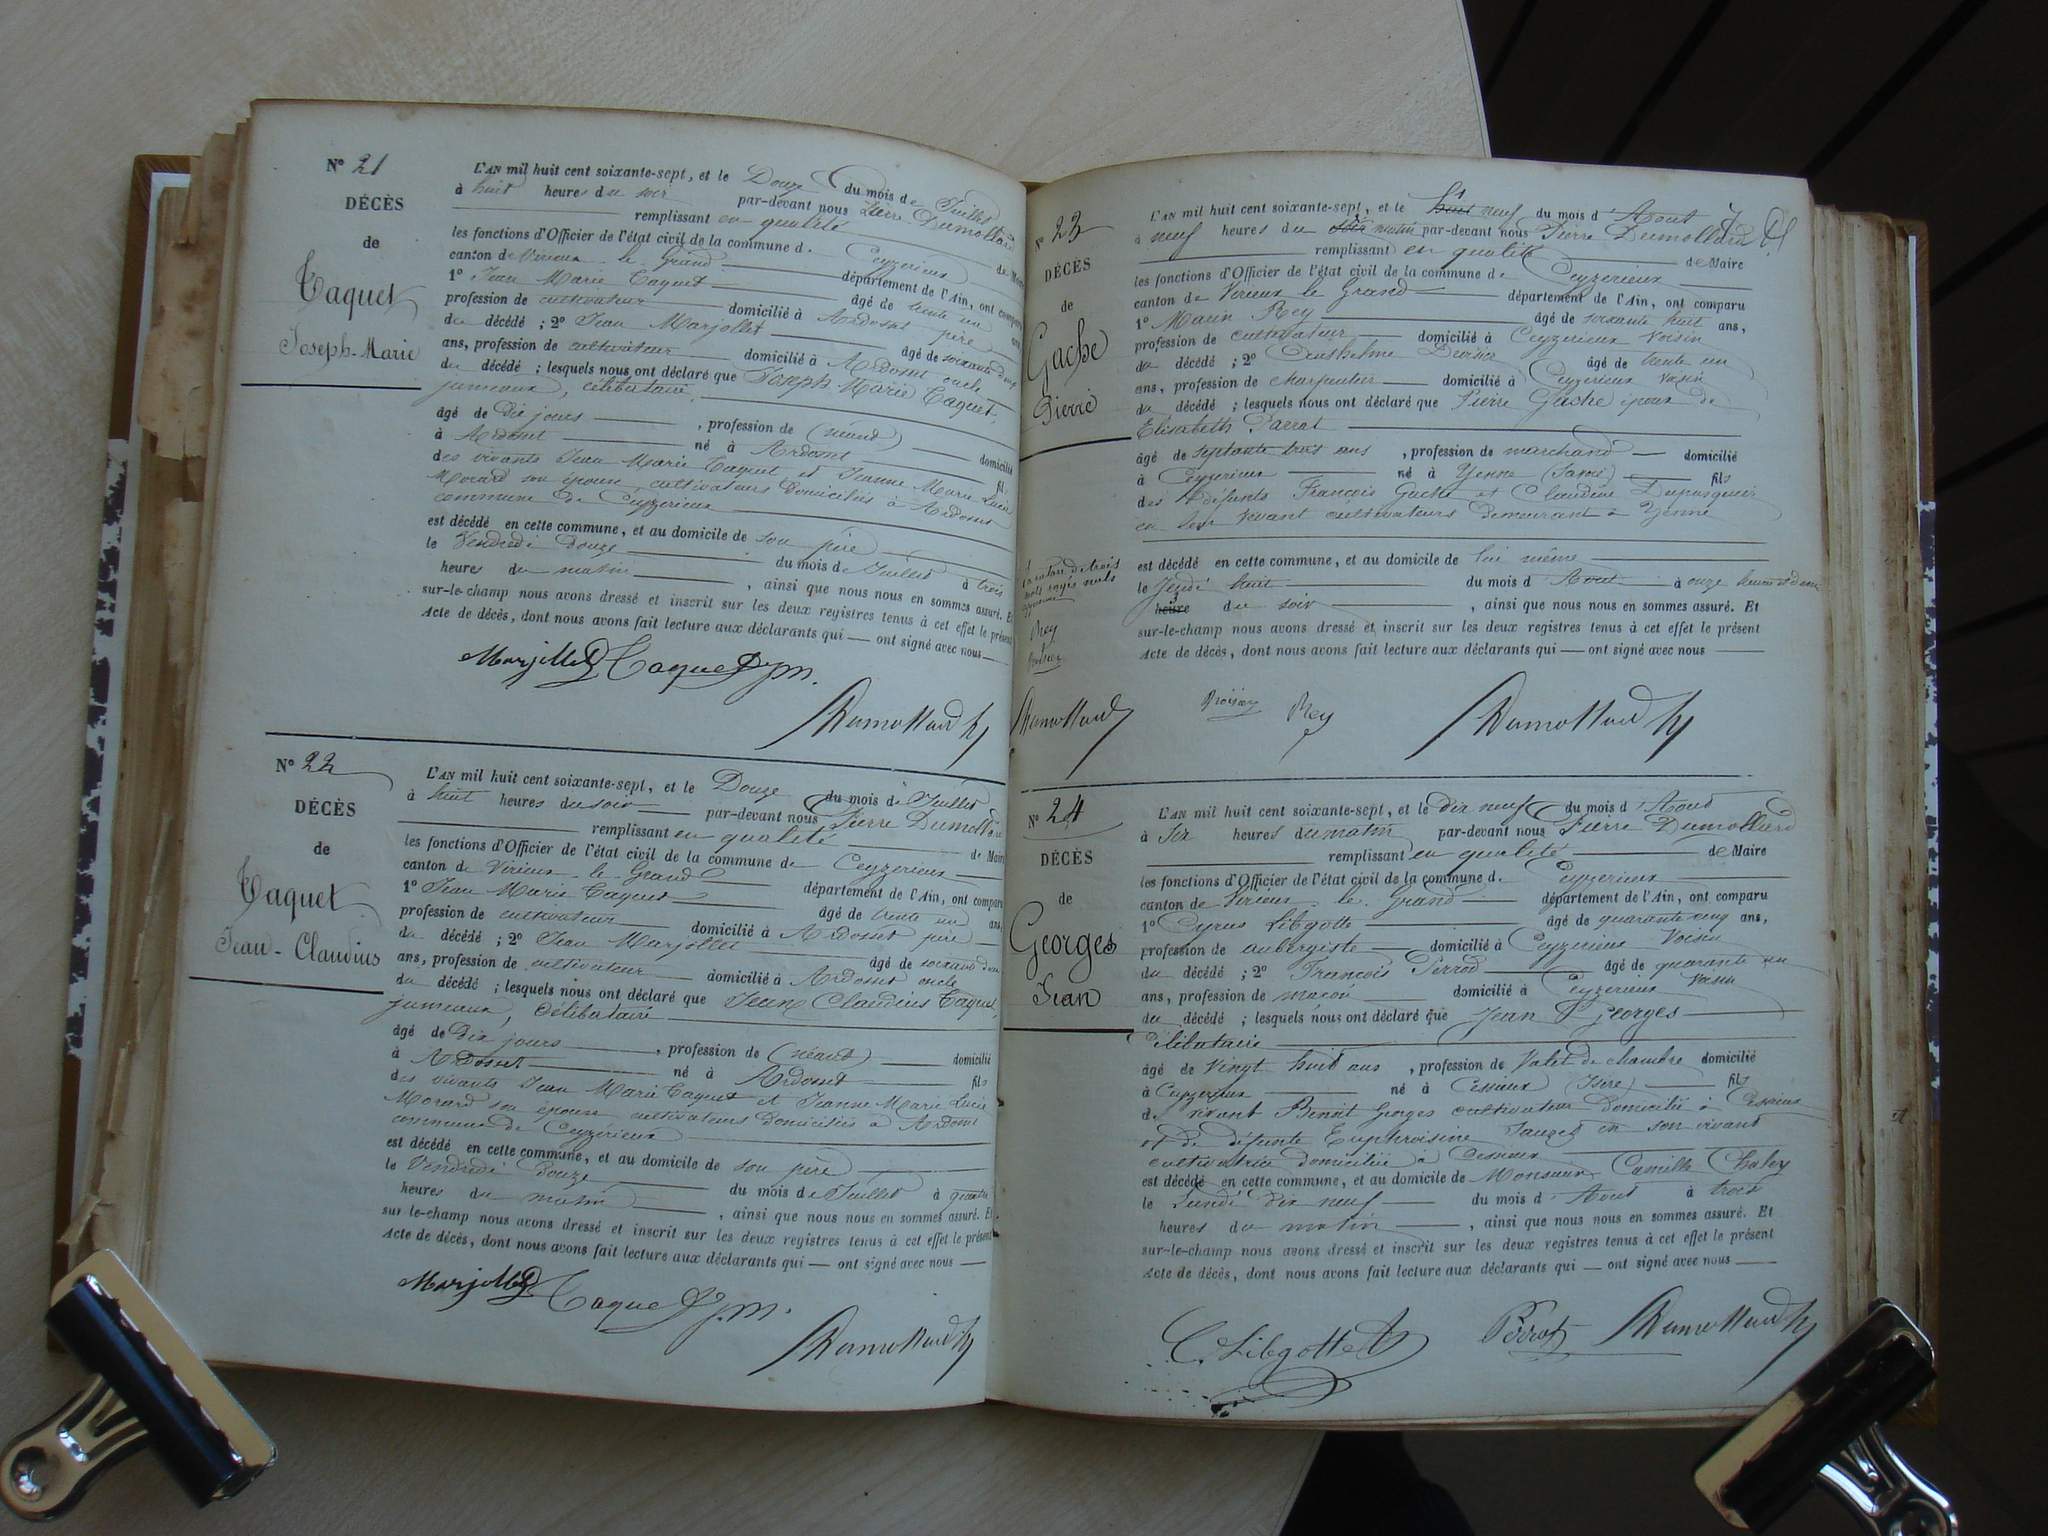 N° 21
DÉCÈS
de
Taquet
Joseph-Marie
L'AN mil huit cent soixante-sept, et le Douze du mois de Juillet
à huit heures du soir par-devant nous Pierre Dumollard
remplissant en qualité de Maire
les fonctions d'Officier de l'état civil de la commune d. Ceyzerieux
canton de Virieux le Grand département de l'Ain, ont comparu
1° Jean Marie Taquet âgé de trente un
profession de cultivateur domicilié à Ardosset père
du décédé ; 2° Jean Marjollet âgé de soixante
ans, profession de cultivateur domicilié à Ardosset oncle
du décédé ; lesquels nous ont déclaré que Joseph Marie Taquet
jumeaux, célibataire
âgé de Dix jours , profession de (néant) domicilié
à Ardosset né à Ardosset fils
des vivants Jean Marie Taquet et Jeanne Marie Lucie
Morard son épouse cultivateurs domiciliés à Ardosset
commune de Ceyzerieux
est décédé en cette commune, et au domicile de son père
le Vendredi douze du mois de Juillet à trois
heures du matin , ainsi que nous nous en sommes assuré. Et
sur-le-champ nous avons dressé et inscrit sur les deux registres tenus à cet effet le présent
Acte de décès, dont nous avons fait lecture aux déclarants qui — ont signé avec nous
Marjollet Taquet j m.
Dumollard
N° 22
DÉCÈS
de
Taquet
Jean-Claudius
L'AN mil huit cent soixante-sept, et le Douze du mois de Juillet
à huit heures du soir par-devant nous Pierre Dumollard
remplissant en qualité de Maire
les fonctions d'Officier de l'état civil de la commune de Ceyzerieux
canton de Virieux-le-Grand département de l'Ain, ont comparu
1° Jean Marie Taquet âgé de trente un ans,
profession de cultivateur domicilié à Ardosset père
du décédé ; 2° Jean Marjollet âgé de soixante
ans, profession de cultivateur domicilié à Ardosset oncle
du décédé ; lesquels nous ont déclaré que Jean Claudius Taquet,
jumeaux, célibataire
âgé de Dix jours , profession de (néant) domicilié
à Ardosset né à Ardosset fils
des vivants Jean Marie Taquet et Jeanne Marie Lucie
Morard son épouse cultivateurs domiciliés à Ardosset
commune de Ceyzérieux
est décédé en cette commune, et au domicile de son père
le Vendredi douze du mois de Juillet à quatre
heures du matin , ainsi que nous nous en sommes assuré. Et
sur le-champ nous avons dressé et inscrit sur les deux registres tenus à cet effet le présent
Acte de décès, dont nous avons fait lecture aux déclarants qui — ont signé avec nous —
Marjollet Taquet j. m.
Dumollard
N° 23
DÉCÈS
de
Gache
Pierre
L'AN mil huit cent soixante-sept, et le huit neuf du mois d'Aout
à neuf heures du soir matin par-devant nous Pierre Dumollard
remplissant en qualité de Maire
les fonctions d'Officier de l'état civil de la commune de Ceyzerieux
canton de Virieux le Grand département de l'Ain, ont comparu
1° Marin Rey âgé de soixante huit ans,
profession de cultivateur domicilié à Ceyzerieux Voisin
du décédé ; 2° âgé de trente un
ans, profession de charpentier domicilié à Ceyzerieux voisin
du décédé ; lesquels nous ont déclaré que Pierre Gache époux de
Elisabeth Parrat
âgé de septante trois ans , profession de marchand — domicilié
à Ceyzerieux né à Yenne fils
des défunts François Gache et Claudine
en leur vivant cultivateurs demeurant à Yenne
est décédé en cette commune, et au domicile de lui même
le Jeudi huit du mois d'Aout à onze heures et demi
heure du soir , ainsi que nous nous en sommes assuré. Et
sur-le-champ nous avons dressé et inscrit sur les deux registres tenus à cet effet le présent
Acte de décès, dont nous avons fait lecture aux déclarants qui — ont signé avec nous —
de trois
mots rayés nuls
Rey
Dumollard
Rey
Dumollard
N° 24
DÉCÈS
de
Georges
Jean
L'AN mil huit cent soixante-sept, et le dix neuf du mois d'Aout
à six heures du matin par-devant nous Pierre Dumollard
remplissant en qualité de Maire
les fonctions d'Officier de l'état civil de la commune d. Ceyzerieux
canton de Virieux le Grand département de l'Ain, ont comparu
1° Cyrus Libgotte âgé de quarante cinq ans,
profession de aubergiste domicilié à Ceyzerieux Voisin
du décédé ; 2° François Perrod âgé de quarante un
ans, profession de maçon domicilié à Ceyzerieux Voisin
du décédé ; lesquels nous ont déclaré que Jean Georges
Célibataire
âgé de vingt huit ans , profession de Valet de chambre domicilié
à Ceyzerieux né à Cessieux (Isère) fils
de vivant Benoit Georges cultivateur domicilié à Cessieux
et de défunte Euphroisine en son vivant
cultivatrice domiciliée à Cessieux
est décédé en cette commune, et au domicile de Monsieur Camille Chaley
le Lundi dix neuf du mois d'Aout à trois
heures du matin , ainsi que nous nous en sommes assuré. Et
sur-le-champ nous avons dressé et inscrit sur les deux registres tenus à cet effet le présent
Acte de décès, dont nous avons fait lecture aux déclarants qui — ont signé avec nous —
C. Libgotte Perrod Dumollard